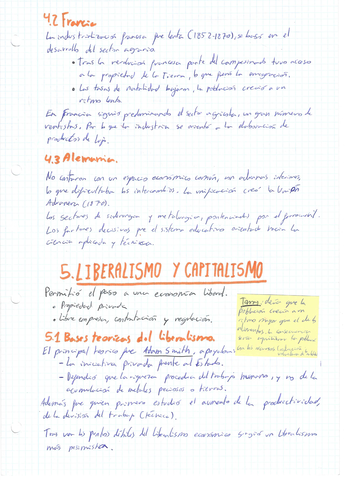 4.2 Francia
La industrialización francesa fue lenta (1852-1870), se basó en el
desarrollo del sector agrario.
• Tras la revolución francesa parte del campesinado tuvo acceso
a la propiedad de la tierra, lo que frenó la emigración.
• Las tasas de natalidad bajaron, la población creció a un
ritmo lento.
En Francia siguió predominando el sector agrícola, un gran número de
rentistas. Por lo que la industria se orientó a la elaboración de
productos de lujo.
4.3 Alemania.
No contaron con un espacio económico común, con aduanas interiores,
lo que dificultaba los intercambios. La unificación creó la Unión
Aduanera
Los sectores de siderurgia y metalurgia, potenciados por el ferrocarril.
Los factores decisivos fue el sistema educativo orientado hacia la
ciencia aplicada y técnica.
5. LIBERALISMO Y CAPITALISMO
Permitió el paso a una economía liberal.
• Propiedad privada
• Libre empresa, contratación y regulación.
decía que la
población crecía a un
ritmo mayor que el de
alimentos, la
5.1 Bases teóricas del liberalismo.
El principal teórico fue Adam Smith, apoyaba:
- La iniciativa privada frente al Estado.
- la riqueza procedía del trabajo humano, y no de la
acumulación de metales preciosos o tierras.
Además fue quien primero estudió el aumento de la productividad,
de la división del trabajo (técnica).
Tras ver los puntos débiles del liberalismo económico surgió un liberalismo
más pesimista.